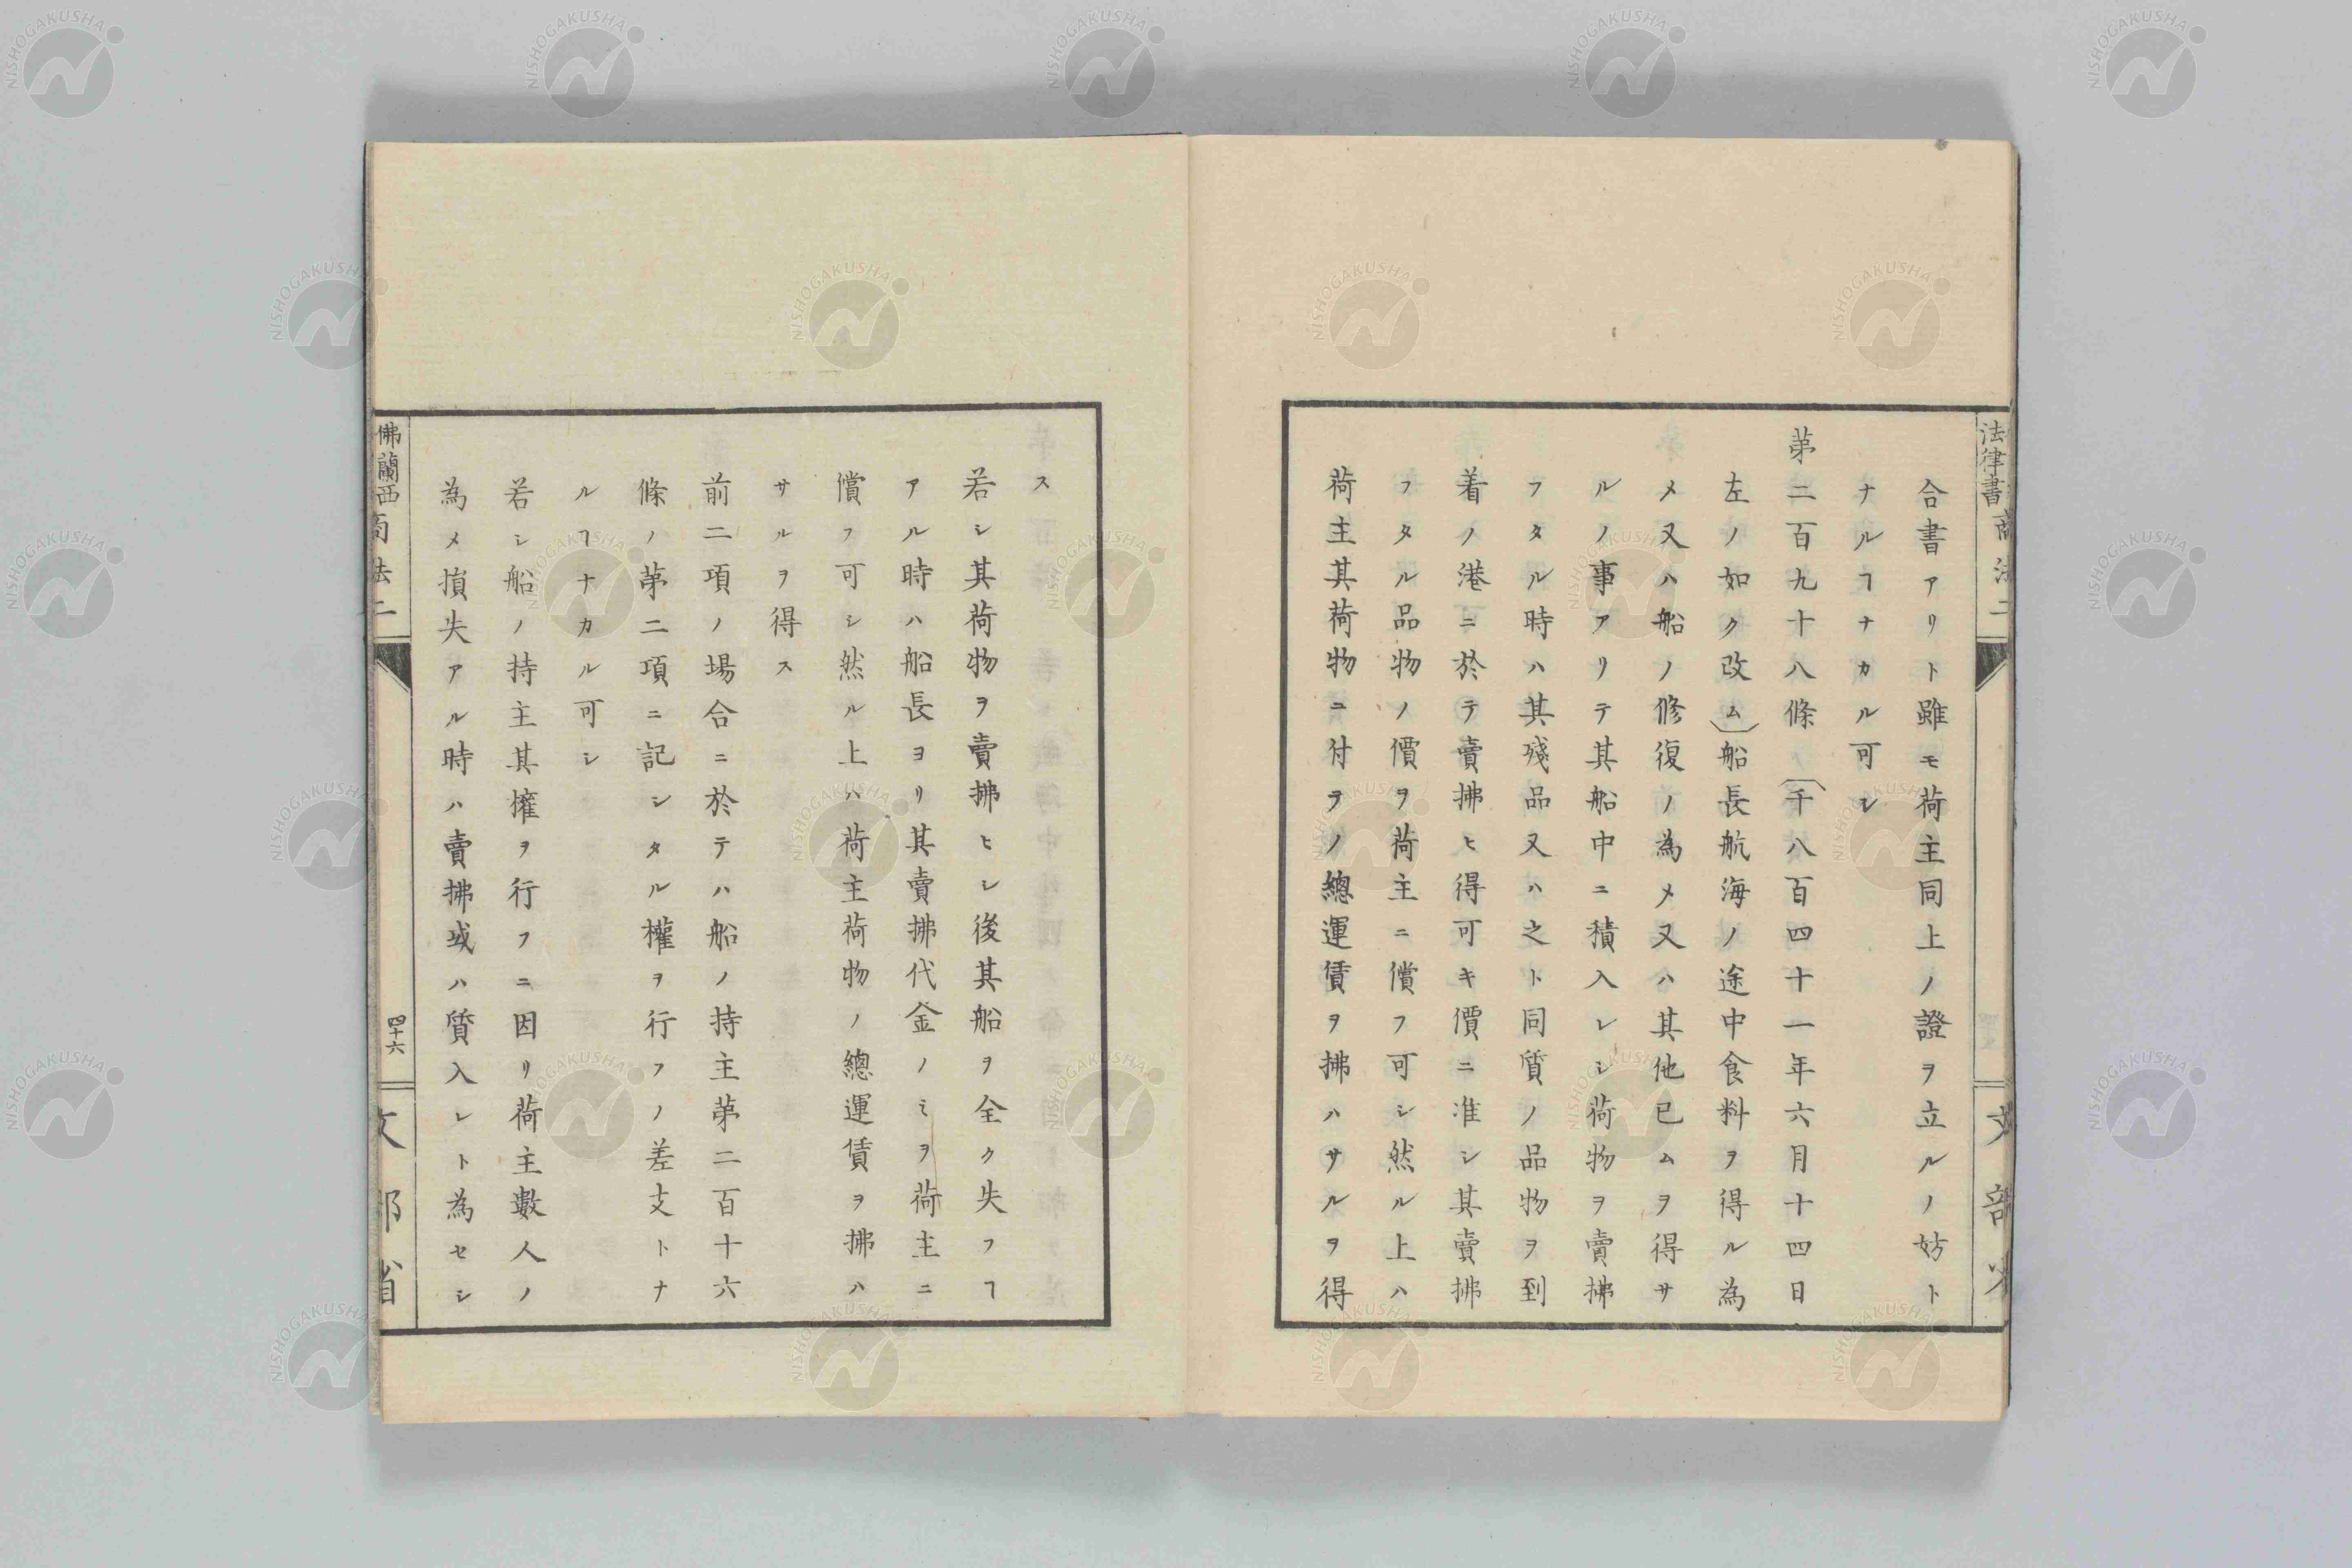 法律書 商法二
合書アリト雖モ荷主同上ノ證ヲ立ルノ妨ト
ナルヿナカル可シ
第二百九十八條ノ(千八百四十一年六月十四日
左ノ如ク改ム)船長航海ノ途中食料ヲ得ル為
メ又ハ船ノ修復ノ為メ又ハ其他已ムヲ得サ
ルノ事アリテ其船中ニ積入レシ荷物ヲ賣拂
フタル時ハ其殘品又ハ之ト同質ノ品物ヲ到
着ノ港ニ於テ賣拂ヒ得可キ價ニ准シ其賣拂
フタル品物ノ價ヲ荷主ニ償フ可シ然ル上ハ
荷主其荷物ニ付テノ總運賃ヲ拂ハサルヲ得
ス
若シ其荷物ヲ賣拂ヒシ後其船ヲ全ク失フヿ
アル時ハ船長ヨリ其賣拂代金ノミヲ荷主ニ
償フ可シ然ル上ハ荷主荷物ノ總運賃ヲ拂ハ
サルヲ得ス
前二項ノ場合ニ於テハ船ノ持主第二百十六
條ノ第二項ニ記シタル權ヲ行フノ差支トナ
ルヿナカル可シ
若シ船ノ持主其權ヲ行フニ因リ荷主數人ノ
為メ損失アル時ハ賣拂或ハ質入レト為セシ
佛蘭西商法二
四十六
文部省
NISHOGAKUSHA